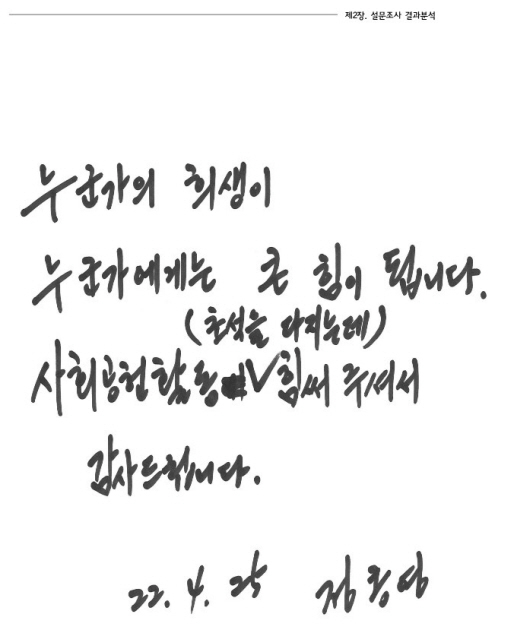 제2장. 설문조사 결과분석
누군가의 희생이
누군가에게는 큰 힘이 됩니다.
(초석을 다지는데)
사회공헌활동 V 힘써 주셔서
감사드립니다.
22. 4. 25 정종영